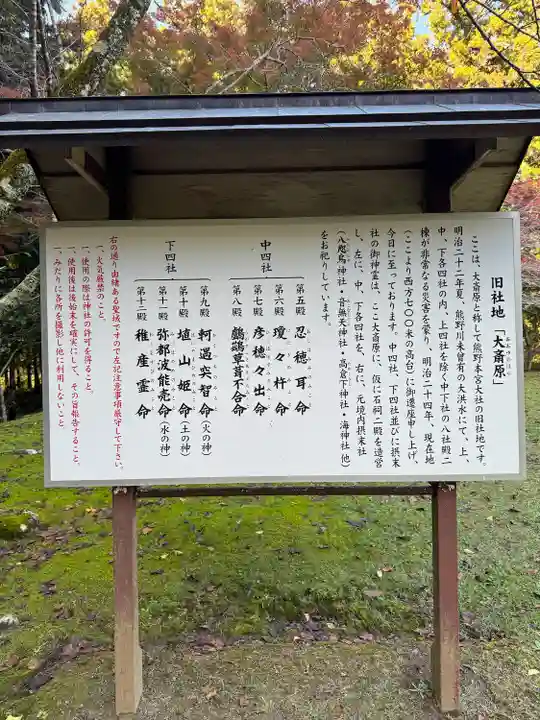 旧社地 「大斎原」
おおゆのはら
ここは、大斎原と称して熊野本宮大社の旧社地です。
明治二十二年夏、熊野川未曾有の大洪水にて、上、
中、下各四社の内、上四社を除く中下社の八社殿二
棟が非常なる災害を蒙り、明治二十四年、現在地
(ここより西方七〇〇米の高台)に御遷座申し上げ、
今日に至っております。中四社、下四社並びに摂末
社の御神霊は、ここ大斎原に、仮に石祠二殿を造営
し、左に、中、下各四社を、右に、元境内摂末社
(八咫烏神社・音無天神社・高倉下神社・海神社 他)
をお祀りしています。
中四社
第五殿 忍穂耳命
第六殿 瓊々杵命
第七殿 彦穂々出命
第八殿 鸕鶿草葺不合命
下四社
第九殿 軻遇突智命(火の神)
第十殿 埴山姫命(土の神)
第十一殿 弥都波能売命(水の神)
第十二殿 稚産霊命
右の通り由緒ある聖域ですので左記注意事項厳守して下さい。
一、火気厳禁のこと。
一、使用の際は神社の許可を得ること。
一、使用後は後始末を確実にして、その旨報告すること。
一、みだりに各所を撮影し他に利用しないこと。